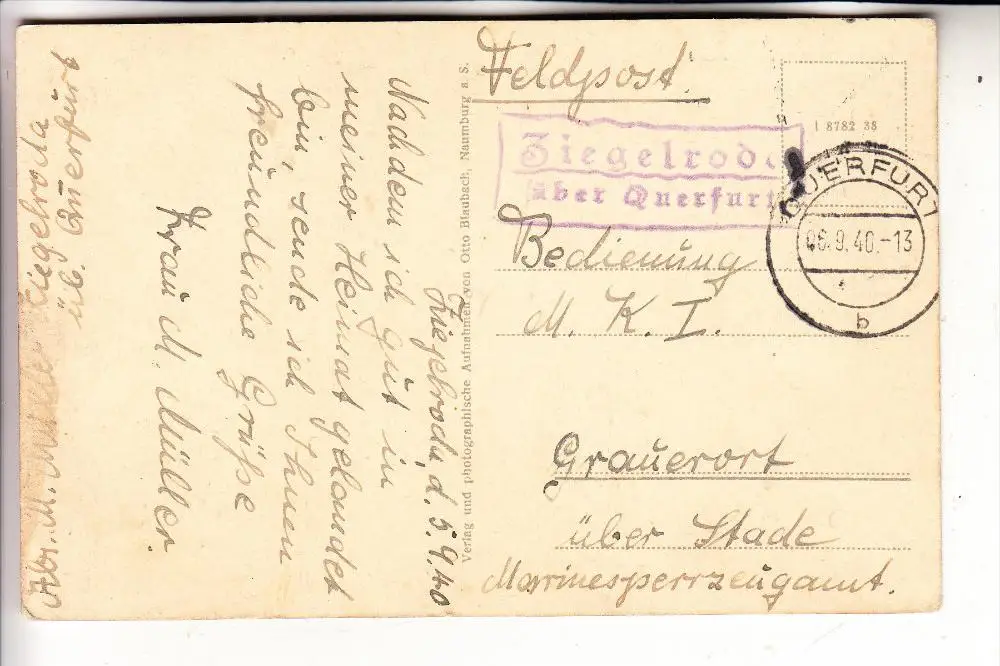 Feldpost.
Ziegelroda
über Querfurt
I 8782 38
QUERFURT
06.9.40.-13
b
Bedienung
M. K. I.
Grauerort
über Stade
Marinesperrzeugamt.
Verlag und photographische Aufnahmen von Otto Blaubach, Naumburg a. S.
Ziegelroda, d. 5.9.40
Nachdem ich gut in
meiner Heimat gelandet
bin, sende ich Ihnen
freundliche Grüße
Frau M. Müller.
Abs. M. Müller Ziegelroda
üb. Querfurt